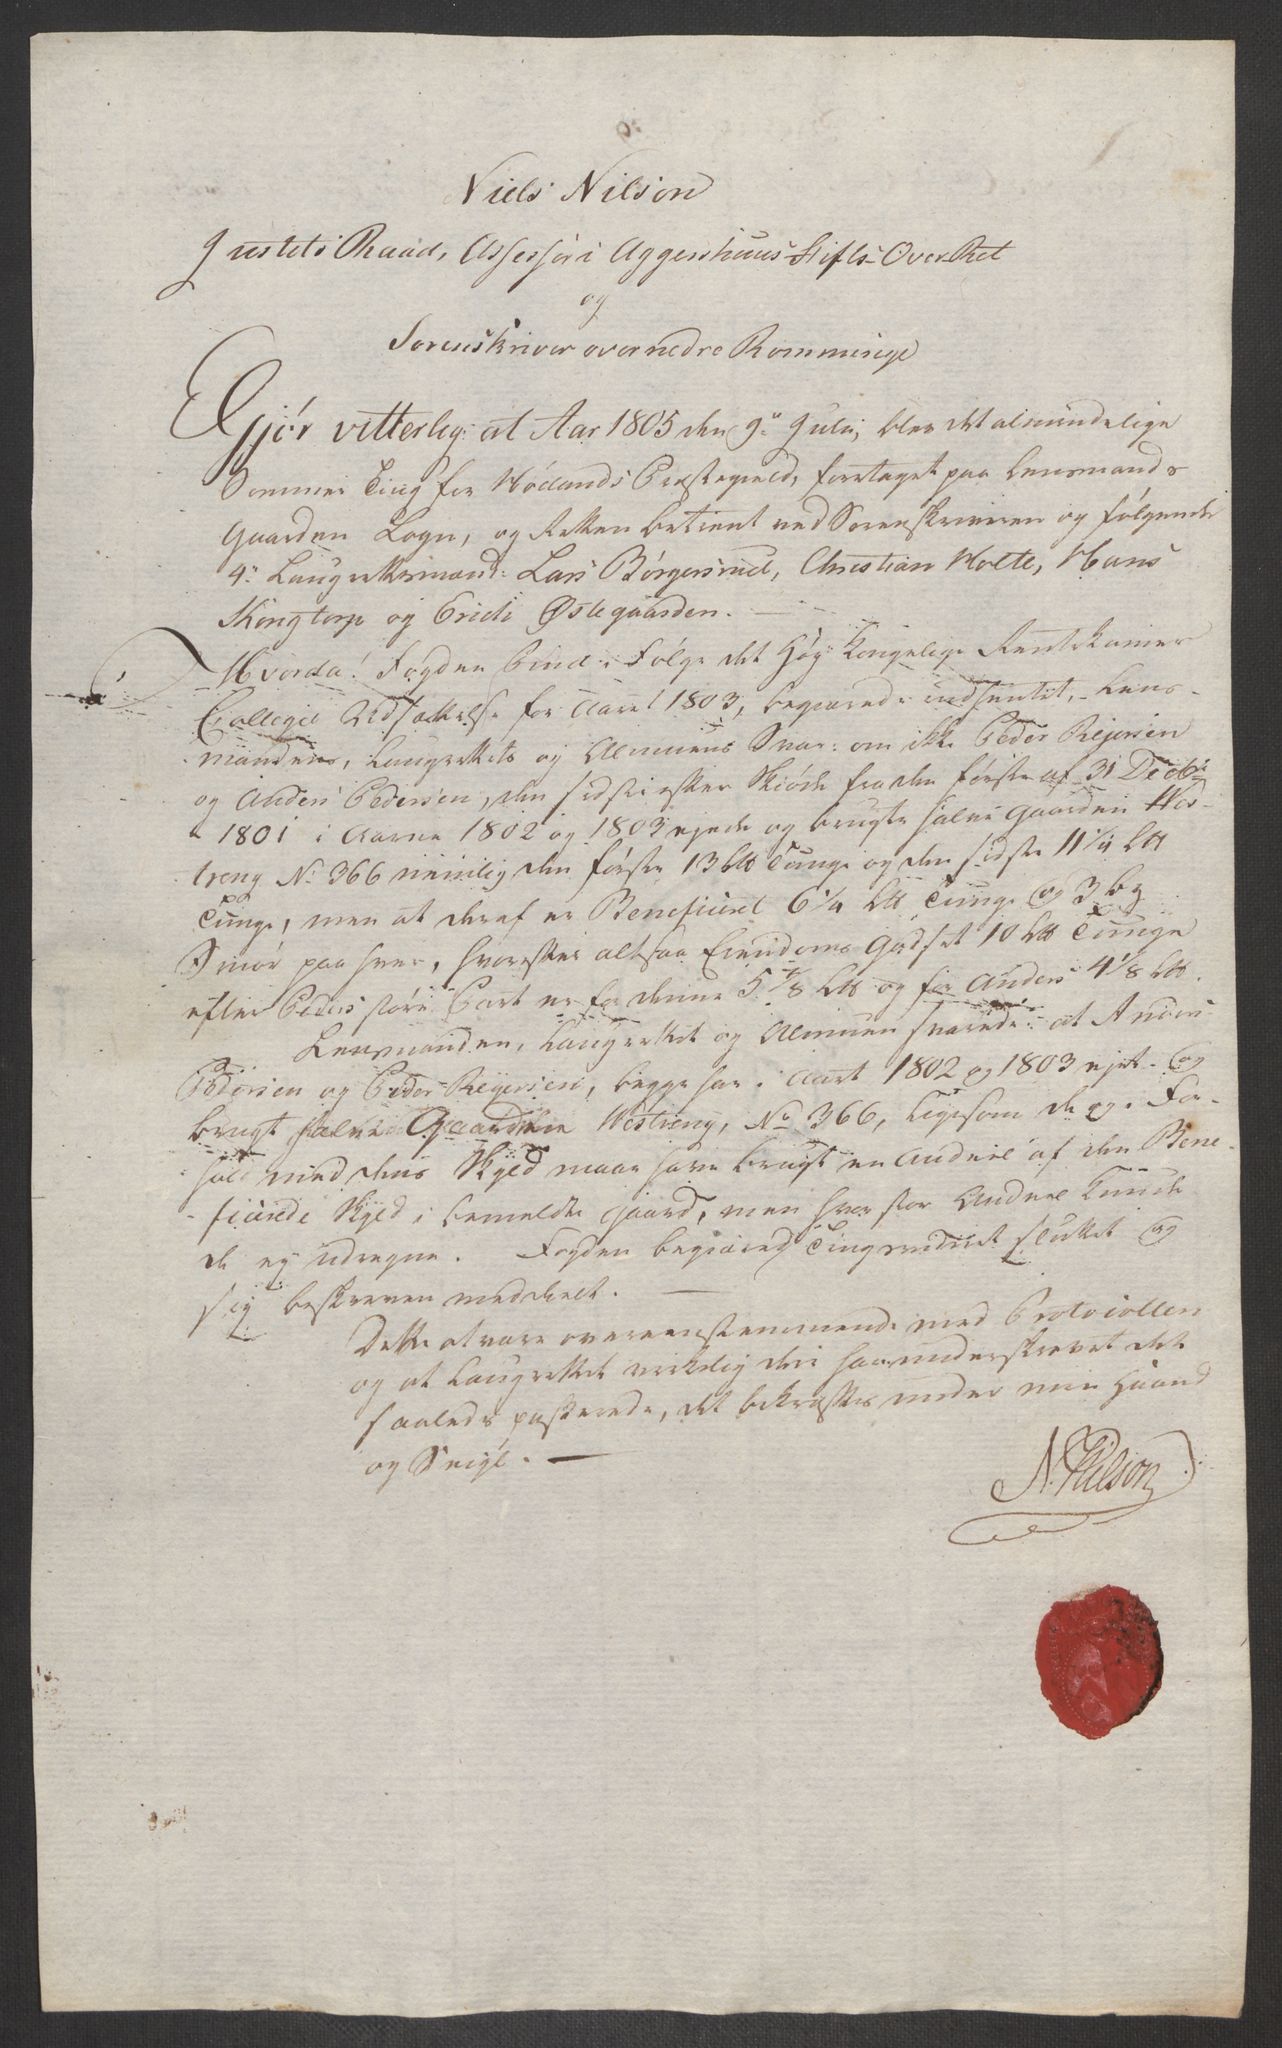 Niels Nilson
Justits Raad, Assessor i Aggershuus Stifts-OverRet
og
Sorenskriver over nedre Rommerige
Gjör vitterlig: at Aar 1805 den 9de Julii, blev det almindelige
Sommer Ting for Hölands Præstegield, foretaget paa Lensmands
Gaarden Logn, og Retten betient ved Sorenskriveren og fölgende
4re Laugrettesmænd: Lars Börgersrud, Christian Holte, Hans
Kongtorp og Erich Østegaarden. —
Hvorda! Fogden Bind i Fölge det Höy Kongelige Rentekamer
Collegie Udsættelse for Aaret 1803, begiærede indhentet, Lens-
mandens, Laugrettets og Almuens Svar: om ikke Peder Rejersen
og Anders Pedersen, den sidste efter Skiöde fra den förste af 31 Decbr
1801 i Aarne 1802 og 1803 ejede og brugte halve Gaarden Wes-
treng No 366 nemlig den förste 13 Lt Tunge og den sidste 11 1/4 Lt
Tunge, men at deraf er Beneficeret 6 1/4 Lt Tunge og 3 bg
Smör paa hver, hvorefter altsaa Eiendoms Godset 10 Lt Tunge
efter Peders störe Part er for denne 5 7/8 Lt og for Anders 4 1/8 Lt.
Lensmanden, Laugrettet og Almuen svarede: at Anders
Pedersen og Peder Reyersen, begge har i Aaret 1802 og 1803 ejet og
brugt halve Gaarden Westreng, No 366, ligesom de og i For-
hold med dens Skyld maae have brugt en Andeel af den Bene-
ficerede Skyld i bemeldte Gaard, men hvor stor Andeel kunde
de ey udregne. Fogden begiærede Tingsvidnet sluttet og
sig beskreven meddeelt. —
Dette at være overeenstemmende med Protocollen
og at Laugrettet virkelig deri har underskrevet det
saaledes passerede, det bekræftes under min Haand
og Seigl. —
N. Nilson